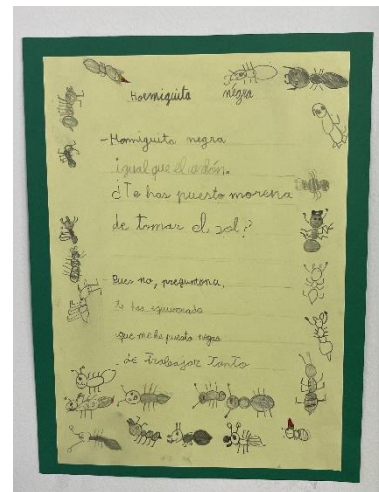 Hormiguita negra
- Hormiguita negra
igual que el carbón.
¿Te has puesto morena
de tomar el sol?
- Pues no, preguntona,
te has equivocado
que me he puesto negra
de trabajar tanto